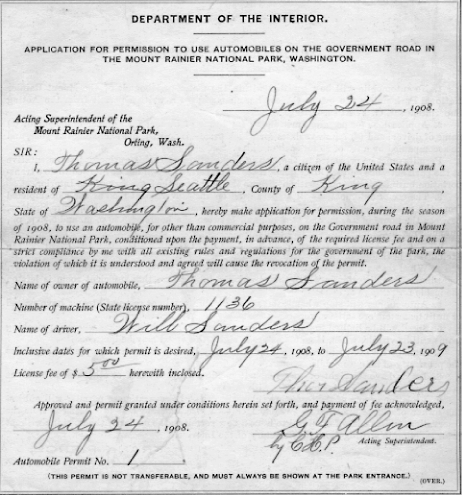 DEPARTMENT OF THE INTERIOR.
APPLICATION FOR PERMISSION TO USE AUTOMOBILES ON THE GOVERNMENT ROAD IN
THE MOUNT RAINIER NATIONAL PARK, WASHINGTON.
July 24, 1908.
Acting Superintendent of the
Mount Rainier National Park,
Orting, Wash.
SIR:
I, Thomas Sanders, a citizen of the United States and a
resident of King Seattle, County of King,
State of Washington, hereby make application for permission, during the season
of 1908, to use an automobile, for other than commercial purposes, on the Government road in Mount
Rainier National Park, conditioned upon the payment, in advance, of the required license fee and on a
strict compliance by me with all existing rules and regulations for the government of the park, the
violation of which it is understood and agreed will cause the revocation of the permit.
Name of owner of automobile, Thomas Sanders
Number of machine (State license number), 1136
Name of driver, Will Sanders
Inclusive dates for which permit is desired, July 24, 1908, to July 23, 1909
License fee of $ 5.00 herewith inclosed.
Thos Sanders
Approved and permit granted under conditions herein set forth, and payment of fee acknowledged,
July 24, 1908. G F Allen
by C.H.P. Acting Superintendent.
Automobile Permit No. 1
(THIS PERMIT IS NOT TRANSFERABLE, AND MUST ALWAYS BE SHOWN AT THE PARK ENTRANCE.) (OVER.)